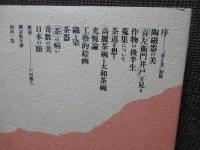 序
陶磁器の美
「喜左衛門井戸」を見る
作物の後半生
蒐集について
茶道を想う
高麗茶碗と大和茶碗
光悦論
工藝的絵画
織と染
茶器
「茶」の病い
奇数の美
日本の眼
解説
戸田勝久